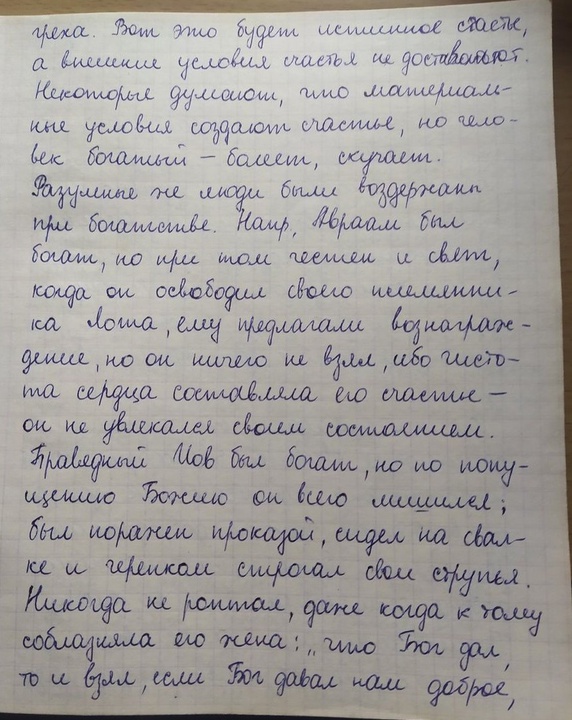 греха. Вот это будет истинное счастье,
а внешние условия счастья не доставляют.
Некоторые думают, что материаль-
ные условия создают счастье, но чело-
век богатый – болеет, скучает.
Разумные же люди были воздержаны
при богатстве. Напр, Авраам был
богат, но при том честен и свят,
когда он освободил своего племянни-
ка Лота, ему предлагали вознаграж-
дение, но он ничего не взял, ибо чисто-
та сердца составляла его счастье –
он не увлекался своим состоянием.
Праведный Иов был богат, но по попу-
щению Божию он всего лишился;
был поражен проказой, сидел на свал-
ке и черепком строгал свои струпья.
Никогда не роптал, даже когда к тому
соблазняла его жена: „что Бог дал,
то и взял, если Бог давал нам доброе,